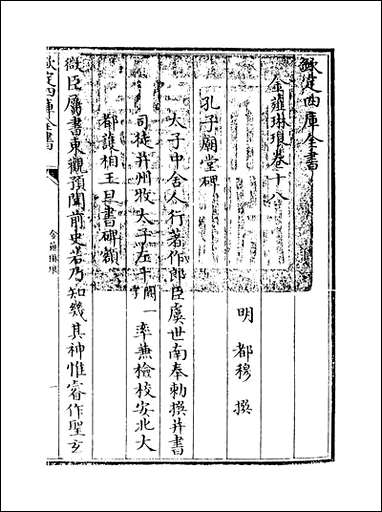 欽定四庫全書
金薤琳琅卷十八
明 都穆 撰
孔子廟堂碑
太子中舍人行著作郎臣虞世南奉勑撰并書
司徒并州牧太子左千闕一字率兼檢校安北大
都護相王旦書碑額
微臣屬書東觀預聞前史若乃知幾其神惟睿作聖玄
欽定四庫全書
金薤琳琅
一